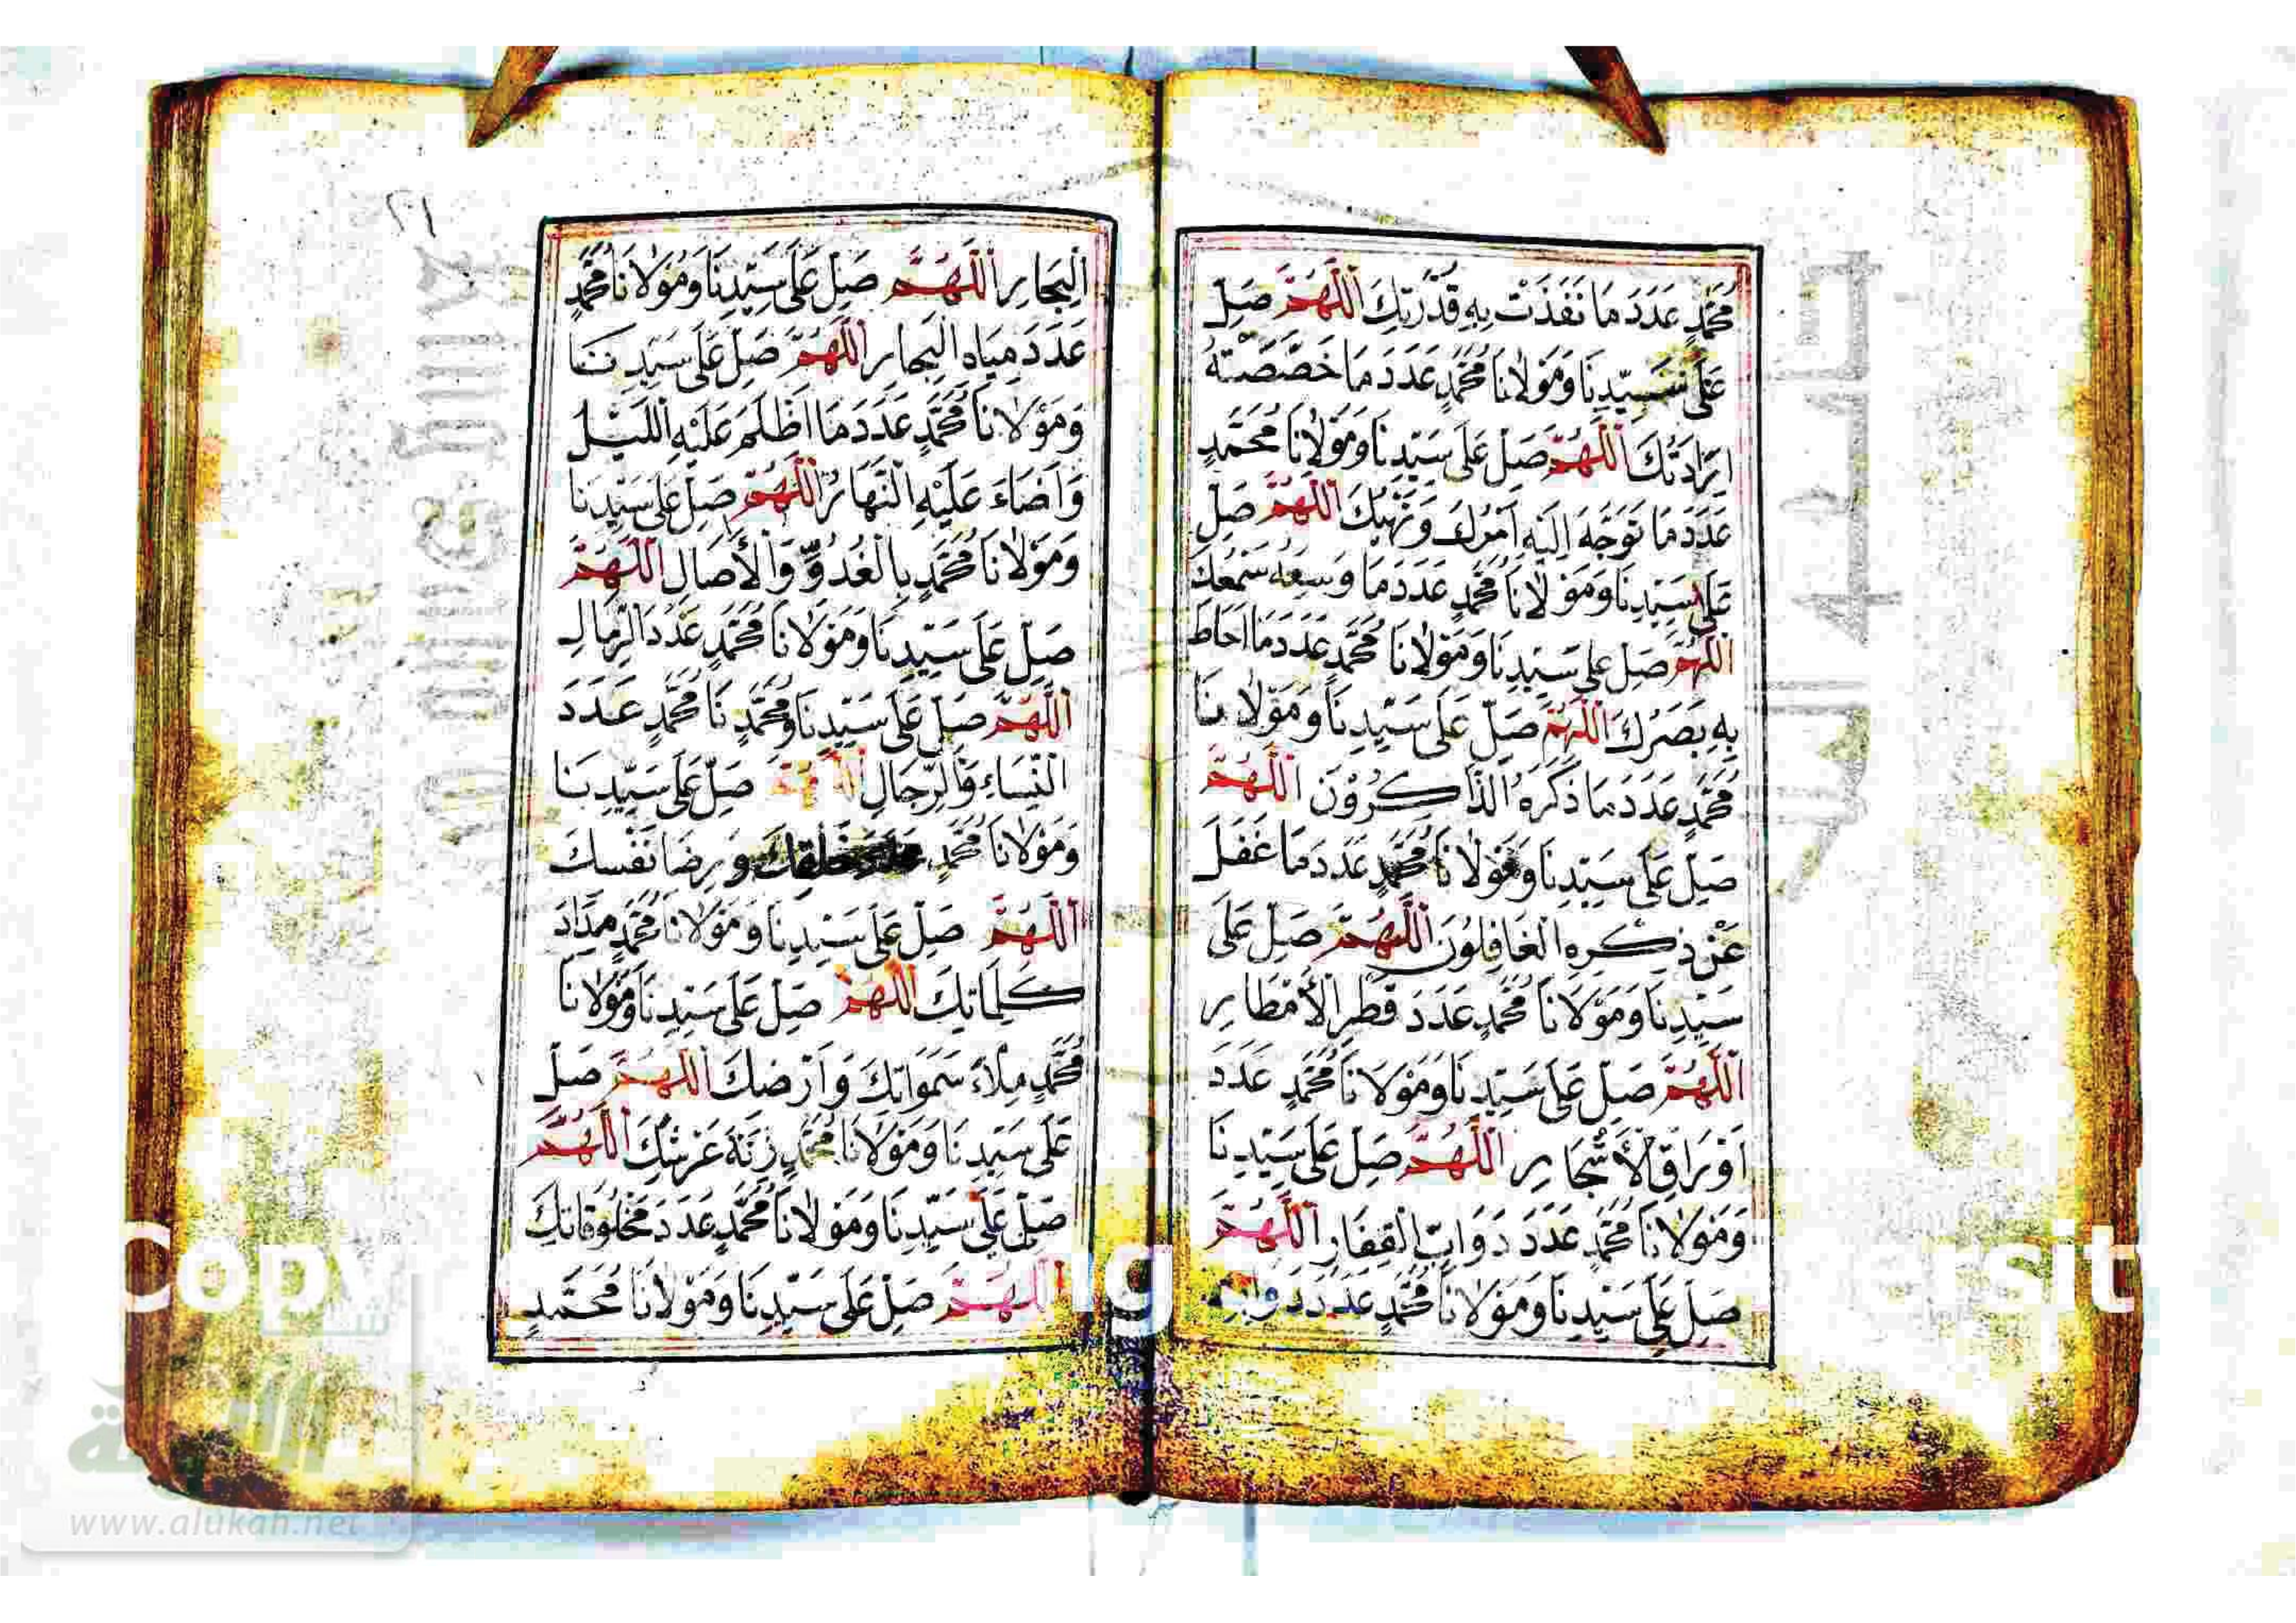 مُحَمَّدٍ عَدَدَ مَا نَفَذَتْ بِهِ قُدْرَتِكَ اَللّٰهُمَّ صَلِّ
عَلَى سَيِّدِنَا وَمَوْلَانَا مُحَمَّدٍ عَدَدَ مَا خَصَّصَتْهُ
اِرَادَتُكَ اَللّٰهُمَّ صَلِّ عَلَى سَيِّدِنَا وَمَوْلَانَا مُحَمَّدٍ
عَدَدَ مَا تَوَجَّهَ اِلَيْهِ اَمْرُكَ وَنَهْيُكَ اَللّٰهُمَّ صَلِّ
عَلَى سَيِّدِنَا وَمَوْلَانَا مُحَمَّدٍ عَدَدَ مَا وَسِعَهُ سَمْعُكَ
اَللّٰهُمَّ صَلِّ عَلَى سَيِّدِنَا وَمَوْلَانَا مُحَمَّدٍ عَدَدَ مَا اَحَاطَ
بِهِ بَصَرُكَ اَللّٰهُمَّ صَلِّ عَلَى سَيِّدِنَا وَمَوْلَانَا
مُحَمَّدٍ عَدَدَ مَا ذَكَرَهُ الذَّاكِرُوْنَ اَللّٰهُمَّ
صَلِّ عَلَى سَيِّدِنَا وَمَوْلَانَا مُحَمَّدٍ عَدَدَ مَا غَفَلَ
عَنْ ذِكْرِهِ الْغَافِلُوْنَ اَللّٰهُمَّ صَلِّ عَلَى
سَيِّدِنَا وَمَوْلَانَا مُحَمَّدٍ عَدَدَ قَطْرِ الْأَمْطَارِ
اَللّٰهُمَّ صَلِّ عَلَى سَيِّدِنَا وَمَوْلَانَا مُحَمَّدٍ عَدَدَ
اَوْرَاقِ الْأَشْجَارِ اَللّٰهُمَّ صَلِّ عَلَى سَيِّدِنَا
وَمَوْلَانَا مُحَمَّدٍ عَدَدَ دَوَابِّ الْقِفَارِ اَللّٰهُمَّ
صَلِّ عَلَى سَيِّدِنَا وَمَوْلَانَا مُحَمَّدٍ عَدَدَ دَوَابِّ
٢١
الْبِحَارِ اَللّٰهُمَّ صَلِّ عَلَى سَيِّدِنَا وَمَوْلَانَا مُحَمَّدٍ
عَدَدَ مِيَاهِ الْبِحَارِ اَللّٰهُمَّ صَلِّ عَلَى سَيِّدِنَا
وَمَوْلَانَا مُحَمَّدٍ عَدَدَ مَا اَظْلَمَ عَلَيْهِ اللَّيْلُ
وَاَضَاءَ عَلَيْهِ النَّهَارُ اَللّٰهُمَّ صَلِّ عَلَى سَيِّدِنَا
وَمَوْلَانَا مُحَمَّدٍ بِالْغُدُوِّ وَالْأَصَالِ اَللّٰهُمَّ
صَلِّ عَلَى سَيِّدِنَا وَمَوْلَانَا مُحَمَّدٍ عَدَدَ الرِّمَالِ
اَللّٰهُمَّ صَلِّ عَلَى سَيِّدِنَا وَمُحَمَّدٍ نَا مُحَمَّدٍ عَدَدَ
النِّسَاءِ وَالرِّجَالِ اَللّٰهُمَّ صَلِّ عَلَى سَيِّدِنَا
وَمَوْلَانَا مُحَمَّدٍ خَلْقِكَ وَرِضَا نَفْسِكَ
اَللّٰهُمَّ صَلِّ عَلَى سَيِّدِنَا وَمَوْلَانَا مُحَمَّدٍ مِدَادَ
كَلِمَاتِكَ اَللّٰهُمَّ صَلِّ عَلَى سَيِّدِنَا وَمَوْلَانَا
مُحَمَّدٍ مِلْاءَ سَمَوَاتِكَ وَاَرْضِكَ اَللّٰهُمَّ صَلِّ
عَلَى سَيِّدِنَا وَمَوْلَانَا مُحَمَّدٍ زِنَةَ عَرْشِكَ اَللّٰهُمَّ
صَلِّ عَلَى سَيِّدِنَا وَمَوْلَانَا مُحَمَّدٍ عَدَدَ مَخْلُوقَاتِكَ
اَللّٰهُمَّ صَلِّ عَلَى سَيِّدِنَا وَمَوْلَانَا مُحَمَّدٍ
www.alukah.net